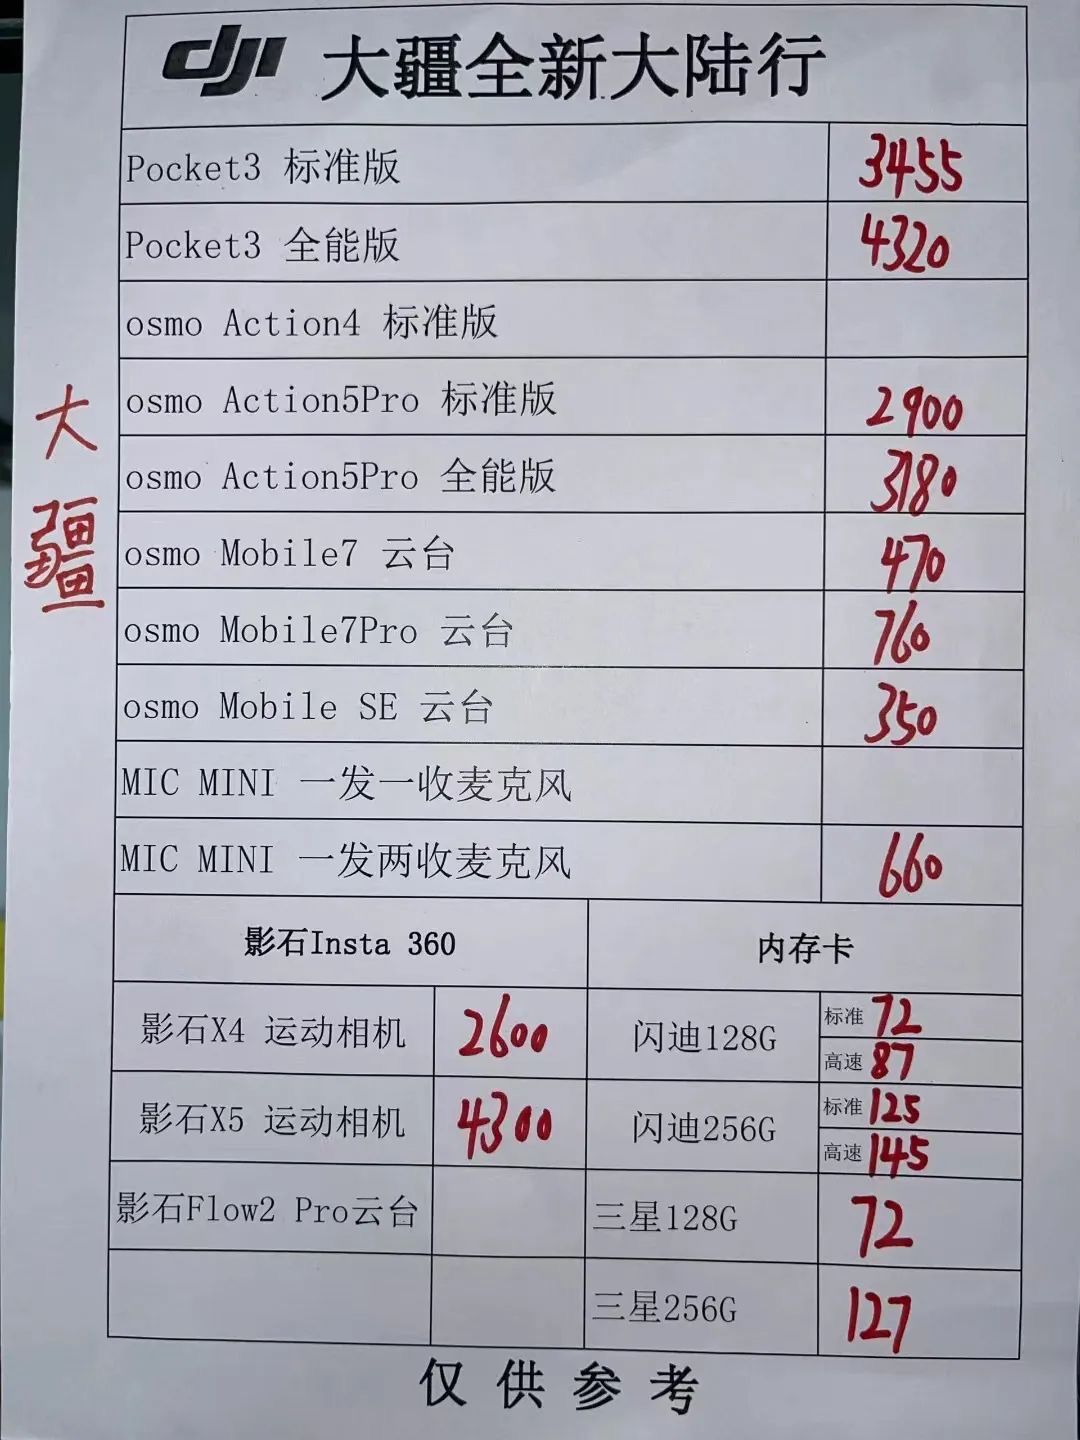 dji 大疆全新大陆行
Pocket3 标准版 3455
Pocket3 全能版 4320
osmo Action4 标准版
osmo Action5Pro 标准版 2900
osmo Action5Pro 全能版 3180
osmo Mobile7 云台 470
osmo Mobile7Pro 云台 760
osmo Mobile SE 云台 350
MIC MINI 一发一收麦克风
MIC MINI 一发两收麦克风 660
大疆
影石Insta 360 内存卡
影石X4 运动相机 2600 闪迪128G 标准 72
高速 87
影石X5 运动相机 4300 闪迪256G 标准 125
高速 145
影石Flow2 Pro云台 三星128G 72
三星256G 127
仅供参考